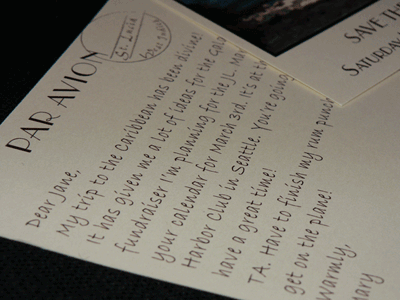 PAR AVION
St. Lucia
SAVE THE
SATURDAY
Dear Jane,
My trip to the Caribbean has been divine!
It has given me a lot of ideas for the Gala
fundraiser I'm planning for the JL. Mar
your calendar for March 3rd. It's at t
Harbor Club in Seattle. You're going
have a great time!
TA. Have to finish my rum punch
get on the plane!
Warmly,
Mary